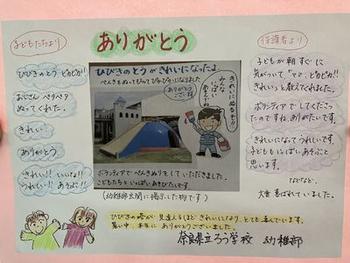 ありがとう
子どもたちより
ひびきのとう ピカピカ!!
おじさん ペタペタ
ぬってくれた。
きれい
ありがとう
きれい!! いいな!!
うれしい!! あそぶ!!
ひびきのとうがきれいになったよ
ぺんきをぬってもらってぴかぴかになりました
ありがとうございます
きれいに
みんな
ボランティアでぺんきぬりをしていただきました。
こどもたちといっぱいあそびたいです
(幼稚部玄関に掲示した物です)
保護者より
子どもが朝すぐに
気がついて「ママ、ピカピカ!!
きれい」と教えてくれました。
ボランティアでしてくださっ
たのですね。ありがたいです。
きれいになってうれしいです。
子どももいっぱいあそぶと
思います。
などなど、
大変喜ばれていました。
ひびきの塔が見違えるほどきれいになり、とても喜んでいます。
暑い中、本当にありがとうございました。
奈良県立ろう学校 幼稚部